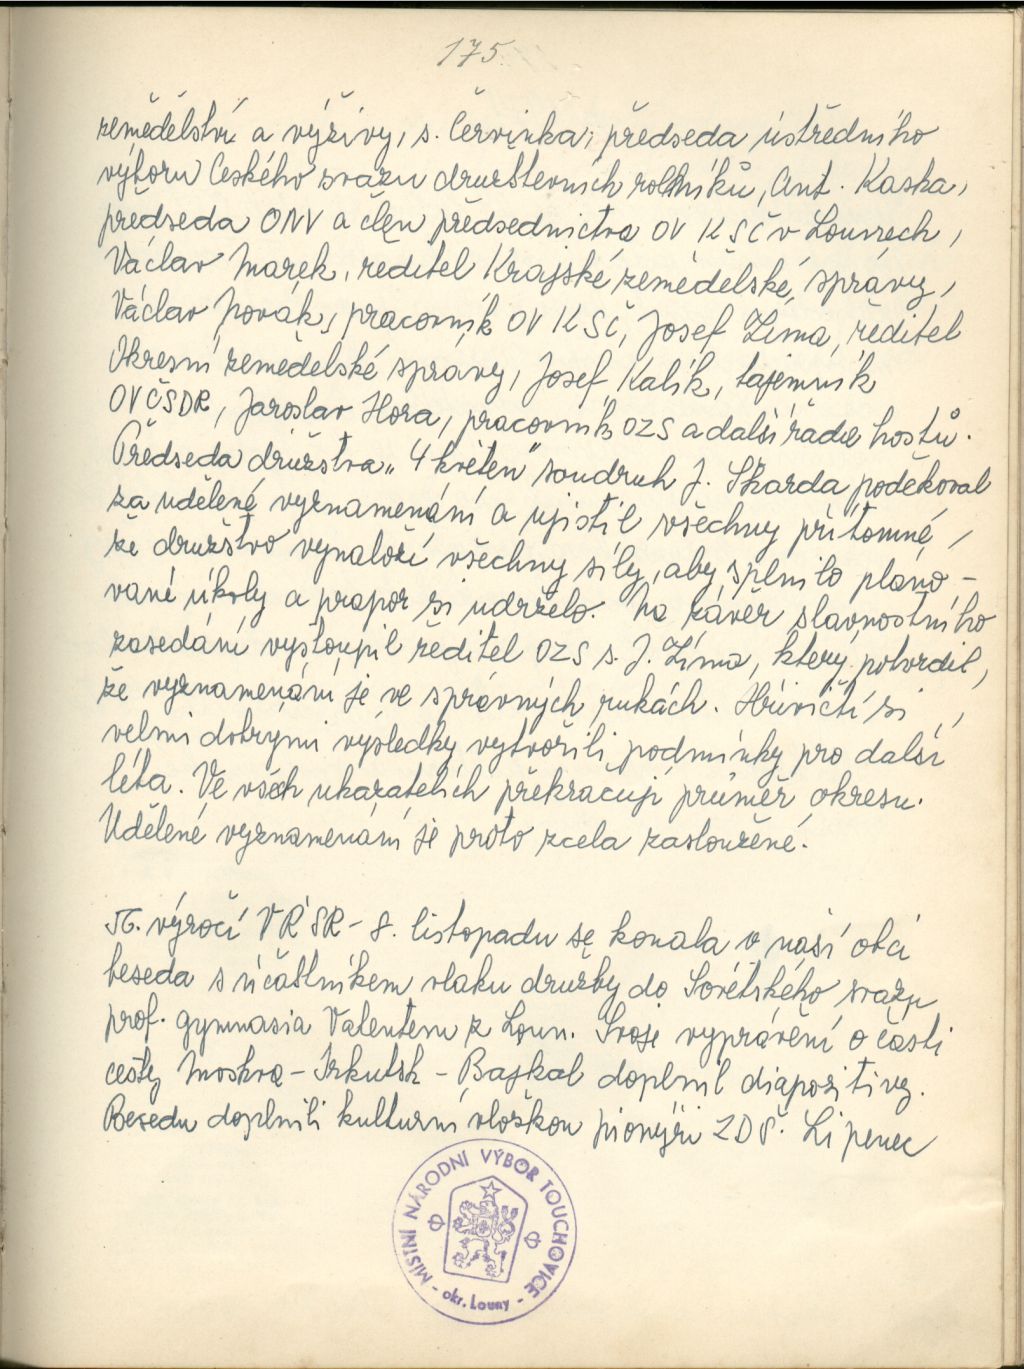 175
zemědělství a výživy, s. Červinka, předseda ústředního
výboru Českého svazu družstevních rolníků, Ant. Kaska,
předseda ONV a člen předsednictva OV KSČ v Lounech,
Václav Marek, reditel Krajské zemědělské správy,
Václav Novák, pracovník OV KSČ, Josef Zíma, ředitel
Okresní zemědělské správy, Josef Kalík, tajemník
OVČSDR, Jaroslav Hora, pracovník OZS a další řada hostů.
Předseda družstva „4 květen" soudruh J. Škarda poděkoval
za udělené vyznamenání a ujistil všechny přítomné,
že družstvo vynaloží všechny síly, aby splnilo pláno-
vané úkoly a prapor si udrželo. Na závěr slavnostního
zasedání vystoupil ředitel OZS s. J. Zíma, který potvrdil,
že vyznamenání je ve správných rukách. Hřivičtí si
velmi dobrými výsledky vytvořili podmínky pro další
léta. Ve všech ukazatelích překračují průměr okresu.
Udělené vyznamenání je proto zcela zasloužené.
56. výročí VŘSR - 8. listopadu se konala v naší obci
beseda s účastníkem vlaku družby do Sovětského svazu
prof. gymnasia Valentem z Loun. Svoje vyprávění o části
cesty Moskva - Irkutsk - Bajkal doplnil diapozitivy.
Besedu doplnili kulturní vložkou pionýři ZDŠ. Lipenec
MÍSTNÍ NÁRODNÍ VÝBOR TOUCHOVICE
- okr. Louny -